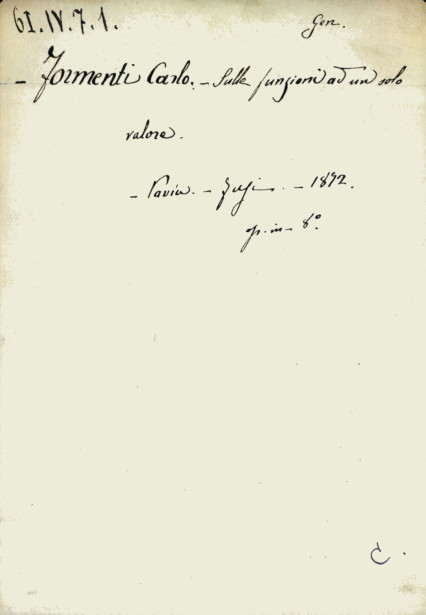 61.IV.7.1.
Gen.
- Formenti Carlo. - Sulle funzioni ad un solo
valore.
- Pavia. - Fusi. - 1872.
op. in - 8°.
C.